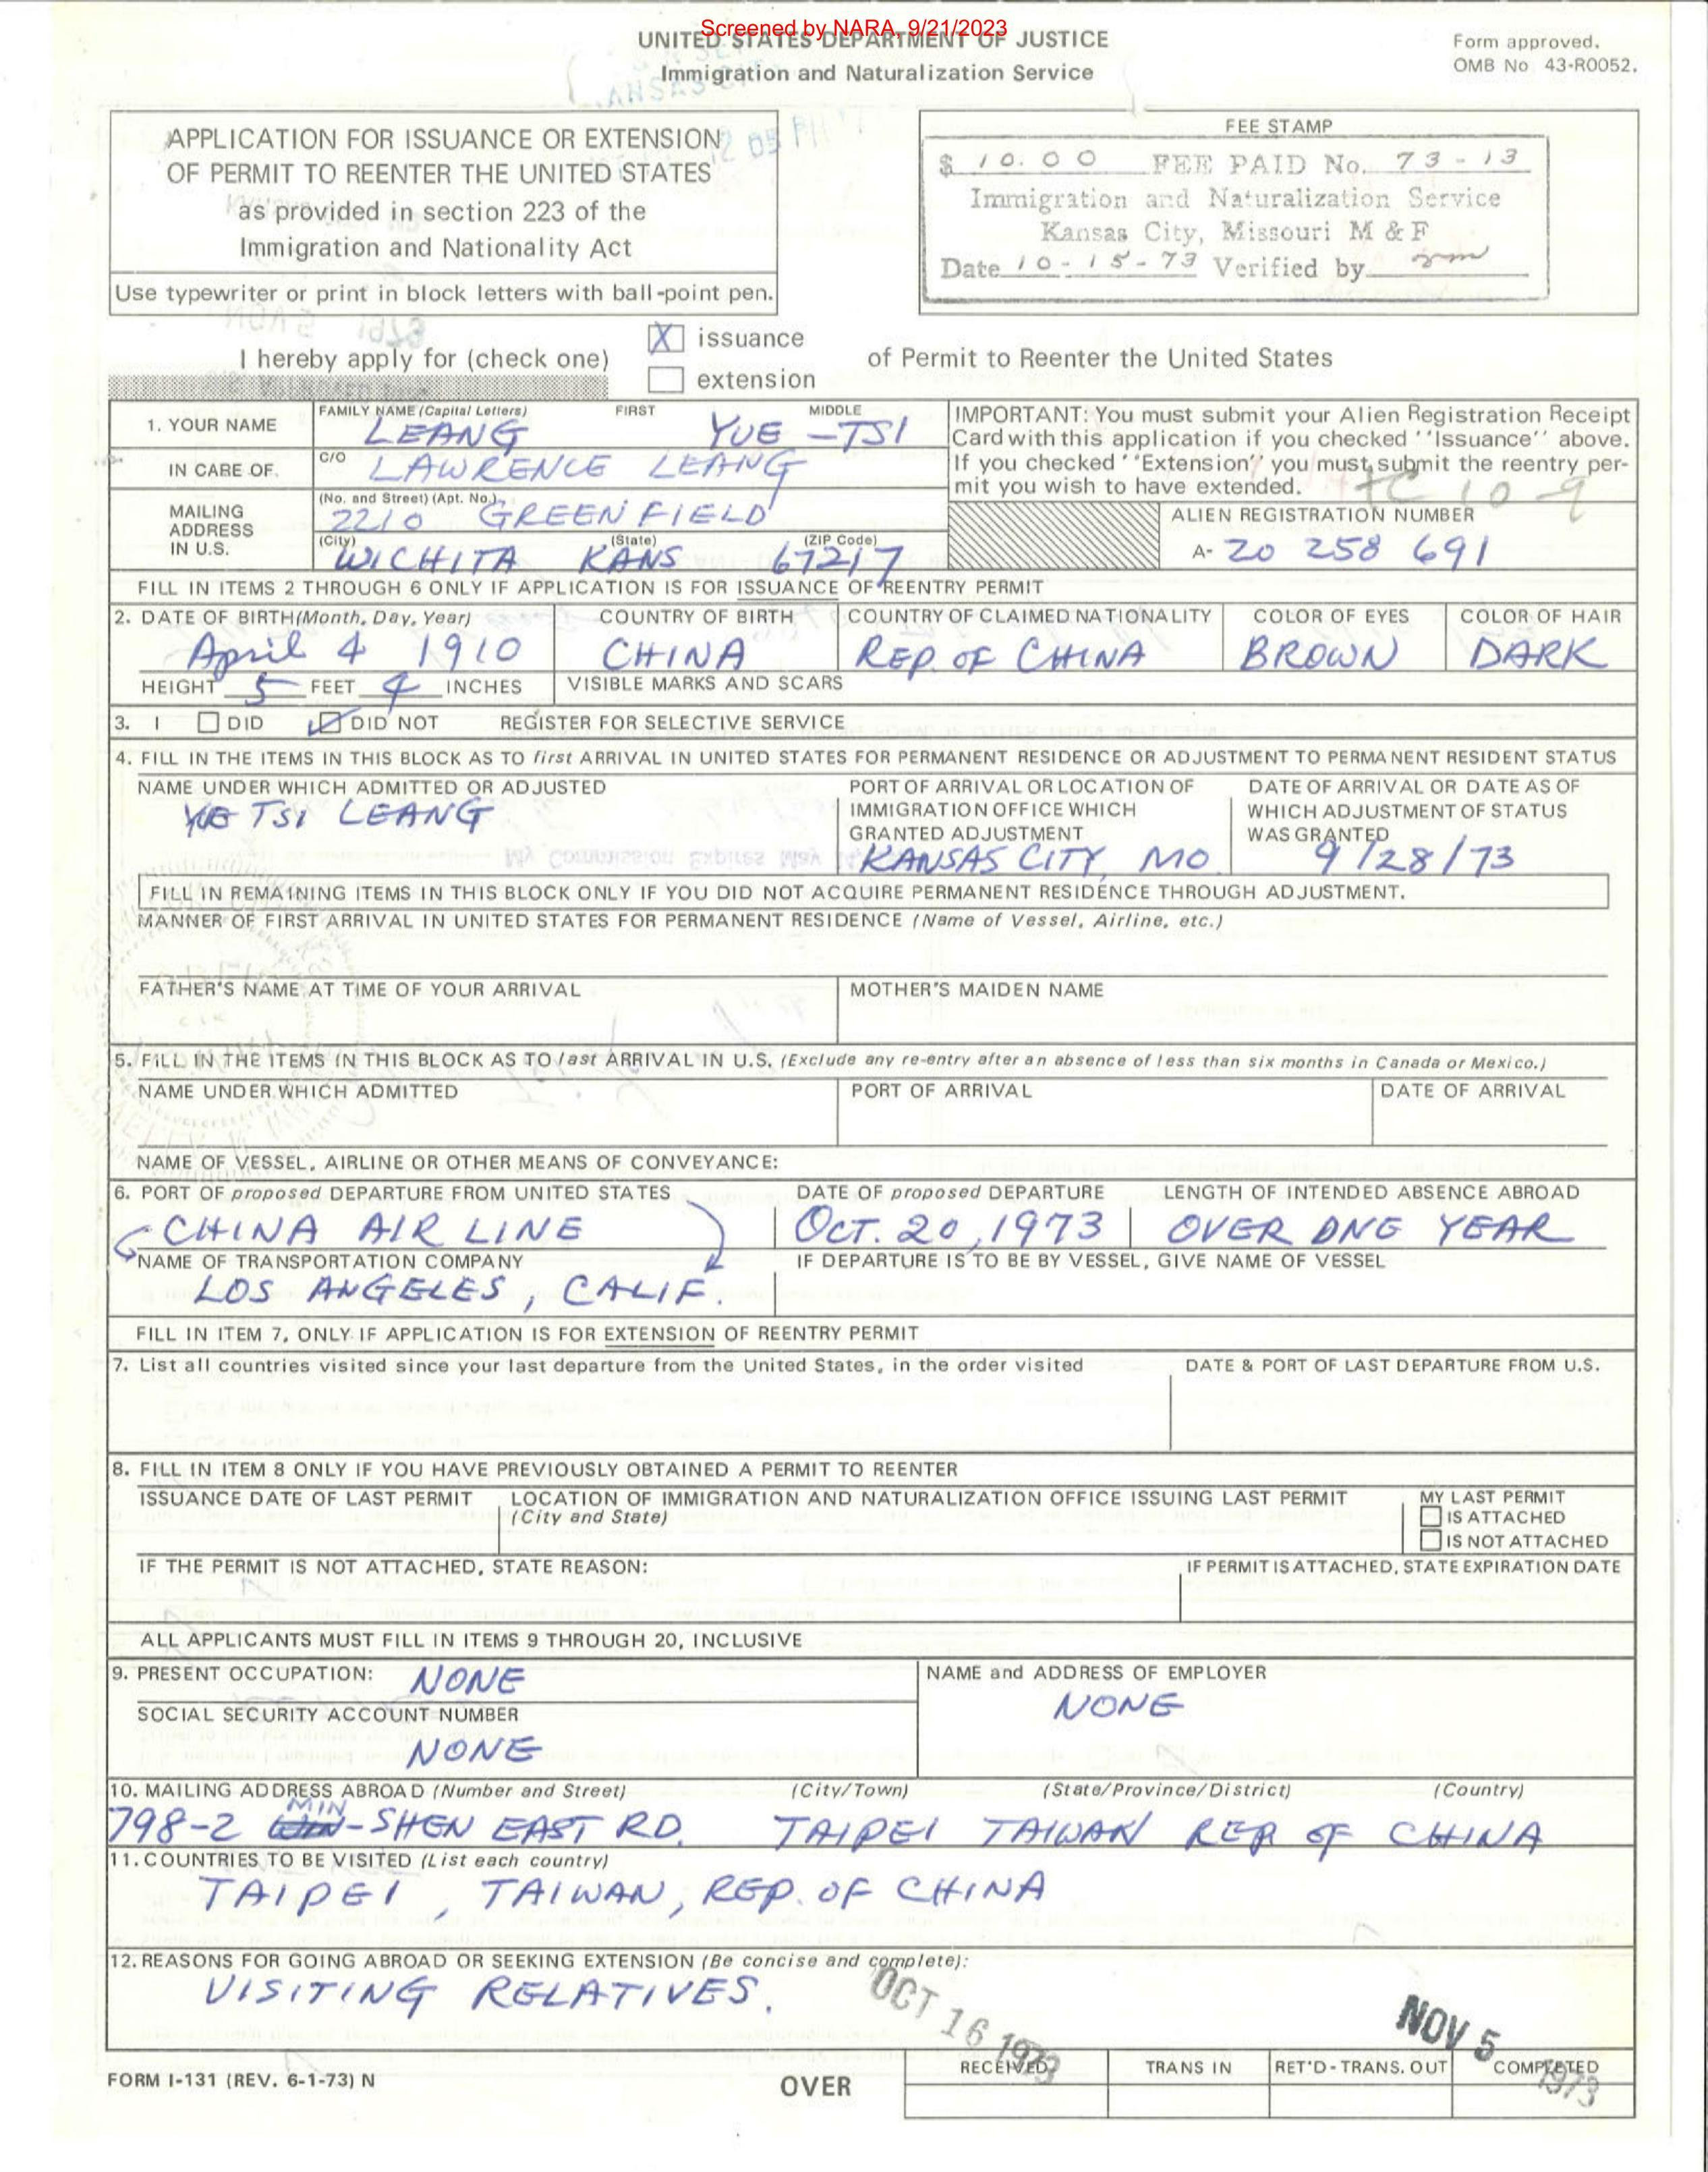 Screened by NARA, 9/21/2023
UNITED STATES DEPARTMENT OF JUSTICE
Immigration and Naturalization Service
Form approved.
OMB No 43-R0052.
APPLICATION FOR ISSUANCE OR EXTENSION
OF PERMIT TO REENTER THE UNITED STATES
as provided in section 223 of the
Immigration and Nationality Act
Use typewriter or print in block letters with ball-point pen.
FEE STAMP
$ 10.00 FEE PAID No. 73-13
Immigration and Naturalization Service
Kansas City, Missouri M & F
Date 10-15-73 Verified by
I hereby apply for (check one)
X issuance
extension
of Permit to Reenter the United States
1. YOUR NAME
FAMILY NAME (Capital Letters) FIRST MIDDLE
LEANG YUE-TSI
IN CARE OF.
C/O LAWRENCE LEANG
MAILING ADDRESS IN U.S.
(No. and Street) (Apt. No.)
2210 GREENFIELD
(City) (State) (ZIP Code)
WICHITA KANS 67217
IMPORTANT: You must submit your Alien Registration Receipt
Card with this application if you checked ''Issuance'' above.
If you checked ''Extension'' you must submit the reentry per-
mit you wish to have extended.
TC 10-9
ALIEN REGISTRATION NUMBER
A- 20 258 691
FILL IN ITEMS 2 THROUGH 6 ONLY IF APPLICATION IS FOR ISSUANCE OF REENTRY PERMIT
2. DATE OF BIRTH (Month, Day, Year) COUNTRY OF BIRTH COUNTRY OF CLAIMED NATIONALITY COLOR OF EYES COLOR OF HAIR
April 4 1910 CHINA REP. OF CHINA BROWN DARK
HEIGHT 5 FEET 4 INCHES VISIBLE MARKS AND SCARS
3. I DID DID NOT REGISTER FOR SELECTIVE SERVICE
4. FILL IN THE ITEMS IN THIS BLOCK AS TO first ARRIVAL IN UNITED STATES FOR PERMANENT RESIDENCE OR ADJUSTMENT TO PERMANENT RESIDENT STATUS
NAME UNDER WHICH ADMITTED OR ADJUSTED
YUE TSI LEANG
PORT OF ARRIVAL OR LOCATION OF
IMMIGRATION OFFICE WHICH
GRANTED ADJUSTMENT
KANSAS CITY, MO
DATE OF ARRIVAL OR DATE AS OF
WHICH ADJUSTMENT OF STATUS
WAS GRANTED
9/28/73
FILL IN REMAINING ITEMS IN THIS BLOCK ONLY IF YOU DID NOT ACQUIRE PERMANENT RESIDENCE THROUGH ADJUSTMENT.
MANNER OF FIRST ARRIVAL IN UNITED STATES FOR PERMANENT RESIDENCE (Name of Vessel, Airline, etc.)
FATHER'S NAME AT TIME OF YOUR ARRIVAL MOTHER'S MAIDEN NAME
5. FILL IN THE ITEMS IN THIS BLOCK AS TO last ARRIVAL IN U.S. (Exclude any re-entry after an absence of less than six months in Canada or Mexico.)
NAME UNDER WHICH ADMITTED PORT OF ARRIVAL DATE OF ARRIVAL
NAME OF VESSEL, AIRLINE OR OTHER MEANS OF CONVEYANCE:
6. PORT OF proposed DEPARTURE FROM UNITED STATES DATE OF proposed DEPARTURE LENGTH OF INTENDED ABSENCE ABROAD
CHINA AIR LINE OCT. 20, 1973 OVER ONE YEAR
NAME OF TRANSPORTATION COMPANY IF DEPARTURE IS TO BE BY VESSEL, GIVE NAME OF VESSEL
LOS ANGELES, CALIF.
FILL IN ITEM 7, ONLY IF APPLICATION IS FOR EXTENSION OF REENTRY PERMIT
7. List all countries visited since your last departure from the United States, in the order visited DATE & PORT OF LAST DEPARTURE FROM U.S.
8. FILL IN ITEM 8 ONLY IF YOU HAVE PREVIOUSLY OBTAINED A PERMIT TO REENTER
ISSUANCE DATE OF LAST PERMIT LOCATION OF IMMIGRATION AND NATURALIZATION OFFICE ISSUING LAST PERMIT
(City and State)
MY LAST PERMIT
IS ATTACHED
IS NOT ATTACHED
IF THE PERMIT IS NOT ATTACHED, STATE REASON: IF PERMIT IS ATTACHED, STATE EXPIRATION DATE
ALL APPLICANTS MUST FILL IN ITEMS 9 THROUGH 20, INCLUSIVE
9. PRESENT OCCUPATION: NONE
SOCIAL SECURITY ACCOUNT NUMBER
NONE
NAME and ADDRESS OF EMPLOYER
NONE
10. MAILING ADDRESS ABROAD (Number and Street) (City/Town) (State/Province/District) (Country)
798-2 MIN-SHEN EAST RD. TAIPEI TAIWAN REP OF CHINA
11. COUNTRIES TO BE VISITED (List each country)
TAIPEI, TAIWAN, REP. OF CHINA
12. REASONS FOR GOING ABROAD OR SEEKING EXTENSION (Be concise and complete):
VISITING RELATIVES.
OCT 16 1973
NOV 5 1973
FORM I-131 (REV. 6-1-73) N
OVER
RECEIVED TRANS IN RET'D-TRANS. OUT COMPLETED